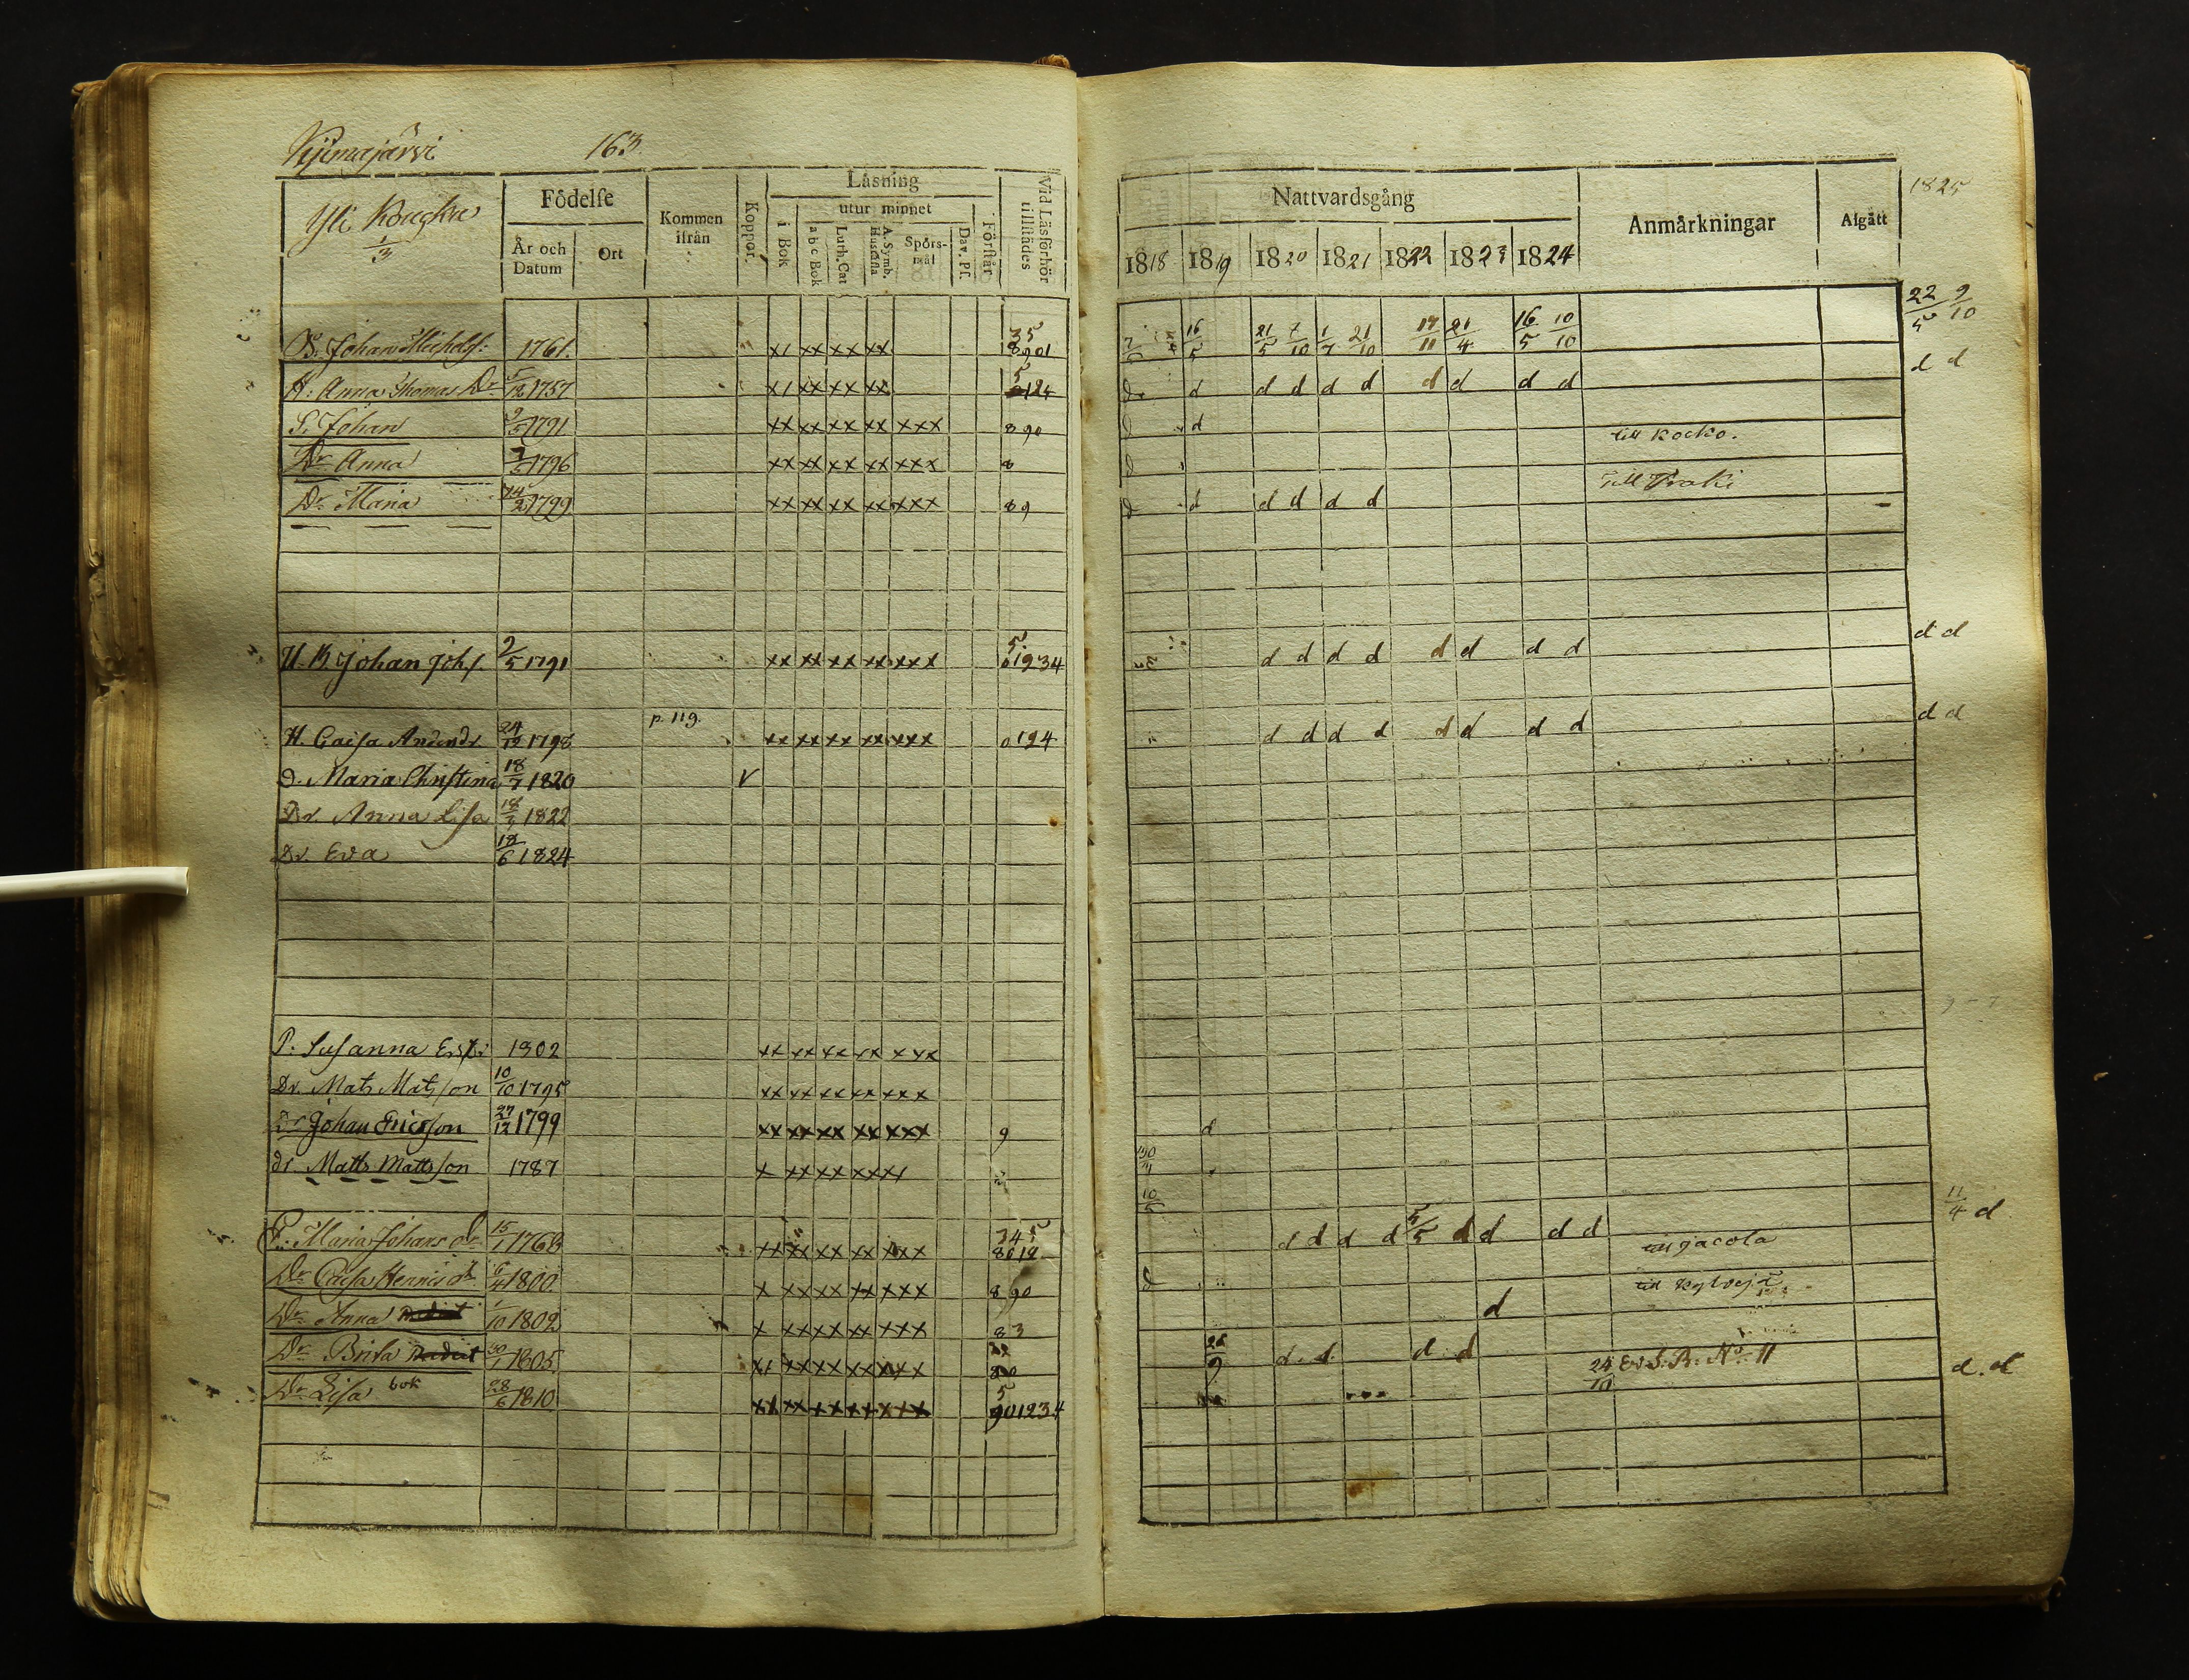 Kjimajärvi 163.
Yli Kougku 1/3
Födelse
År och Datum
Ort
Kommen ifrån
Koppor.
Läsning
i Bok
utur minnet
a b c Bok
Luth. Cat
A. Symb. Huscafla
Spörsmål
Dav. Ps.
Förstår
Vid Läsförhör tillstädes
Nattvardsgång
1818 1819 1820 1821 1822 1823 1824
Anmärkningar
Afgått
1825
B. Johan Michels: 1761. x/ xx xx xx 35 8901 16/5 21/5 7/10 1/7 21/10 17/11 21/4 16/5 10/10 22/5 9/10
H: Anna Thomas Dr 5/12 1757 x/ xx xx xx 5 d d d d d d d d d d d
S. Johan 2/5 1791 xx xx xx xx xxx 890 d till Kocko.
Dr Anna 1796 xx xx xx xx xxx 8
Dr Maria 14/2 1799 xx xx xx xx xxx 89 d d d d d till Praki
U. B Johan Joh s. 2/5 1791 xx xx xx xx xxx 5. 01234 d d d d d d d d d d
H. Caisa 24/12 1798 p. 119. xx xx xx xx xxx 0124 d d d d d d d d d d
D. Maria Christina 18/7 1820 v
Dr. Anna Lisa 18/9 1822
Dr. Eva 18/6 1824
P: Susanna 1802 xx xx xx xx xxx
Dr. Mats Matsson 10/10 1795 xx xx xx xx xxx
Dr Johan Ericsson 27/12 1799 xx xx xx xx xxx 9 d
dr. Matts Mattsson 1787 x xx xx xx x/
P: Maria Johans dr 15/1 1768 xx xx xx xx xxx 345 8012 d d d d 5/5 d d d d till Jacola 11/4 d
Dr Caisa Henrics dr 1800 x xx xx xx xxx 890
Dr Anna 1/10 1802 x xx xx xx xxx 83 d
Dr Brita 30/1 1805 x/ xx xx xx xxx 26/9 d. d. d d 24/10 No 11 d. d
Dr Lisa bok 28/6 1810 xx xx xx xx xxx 5 901234